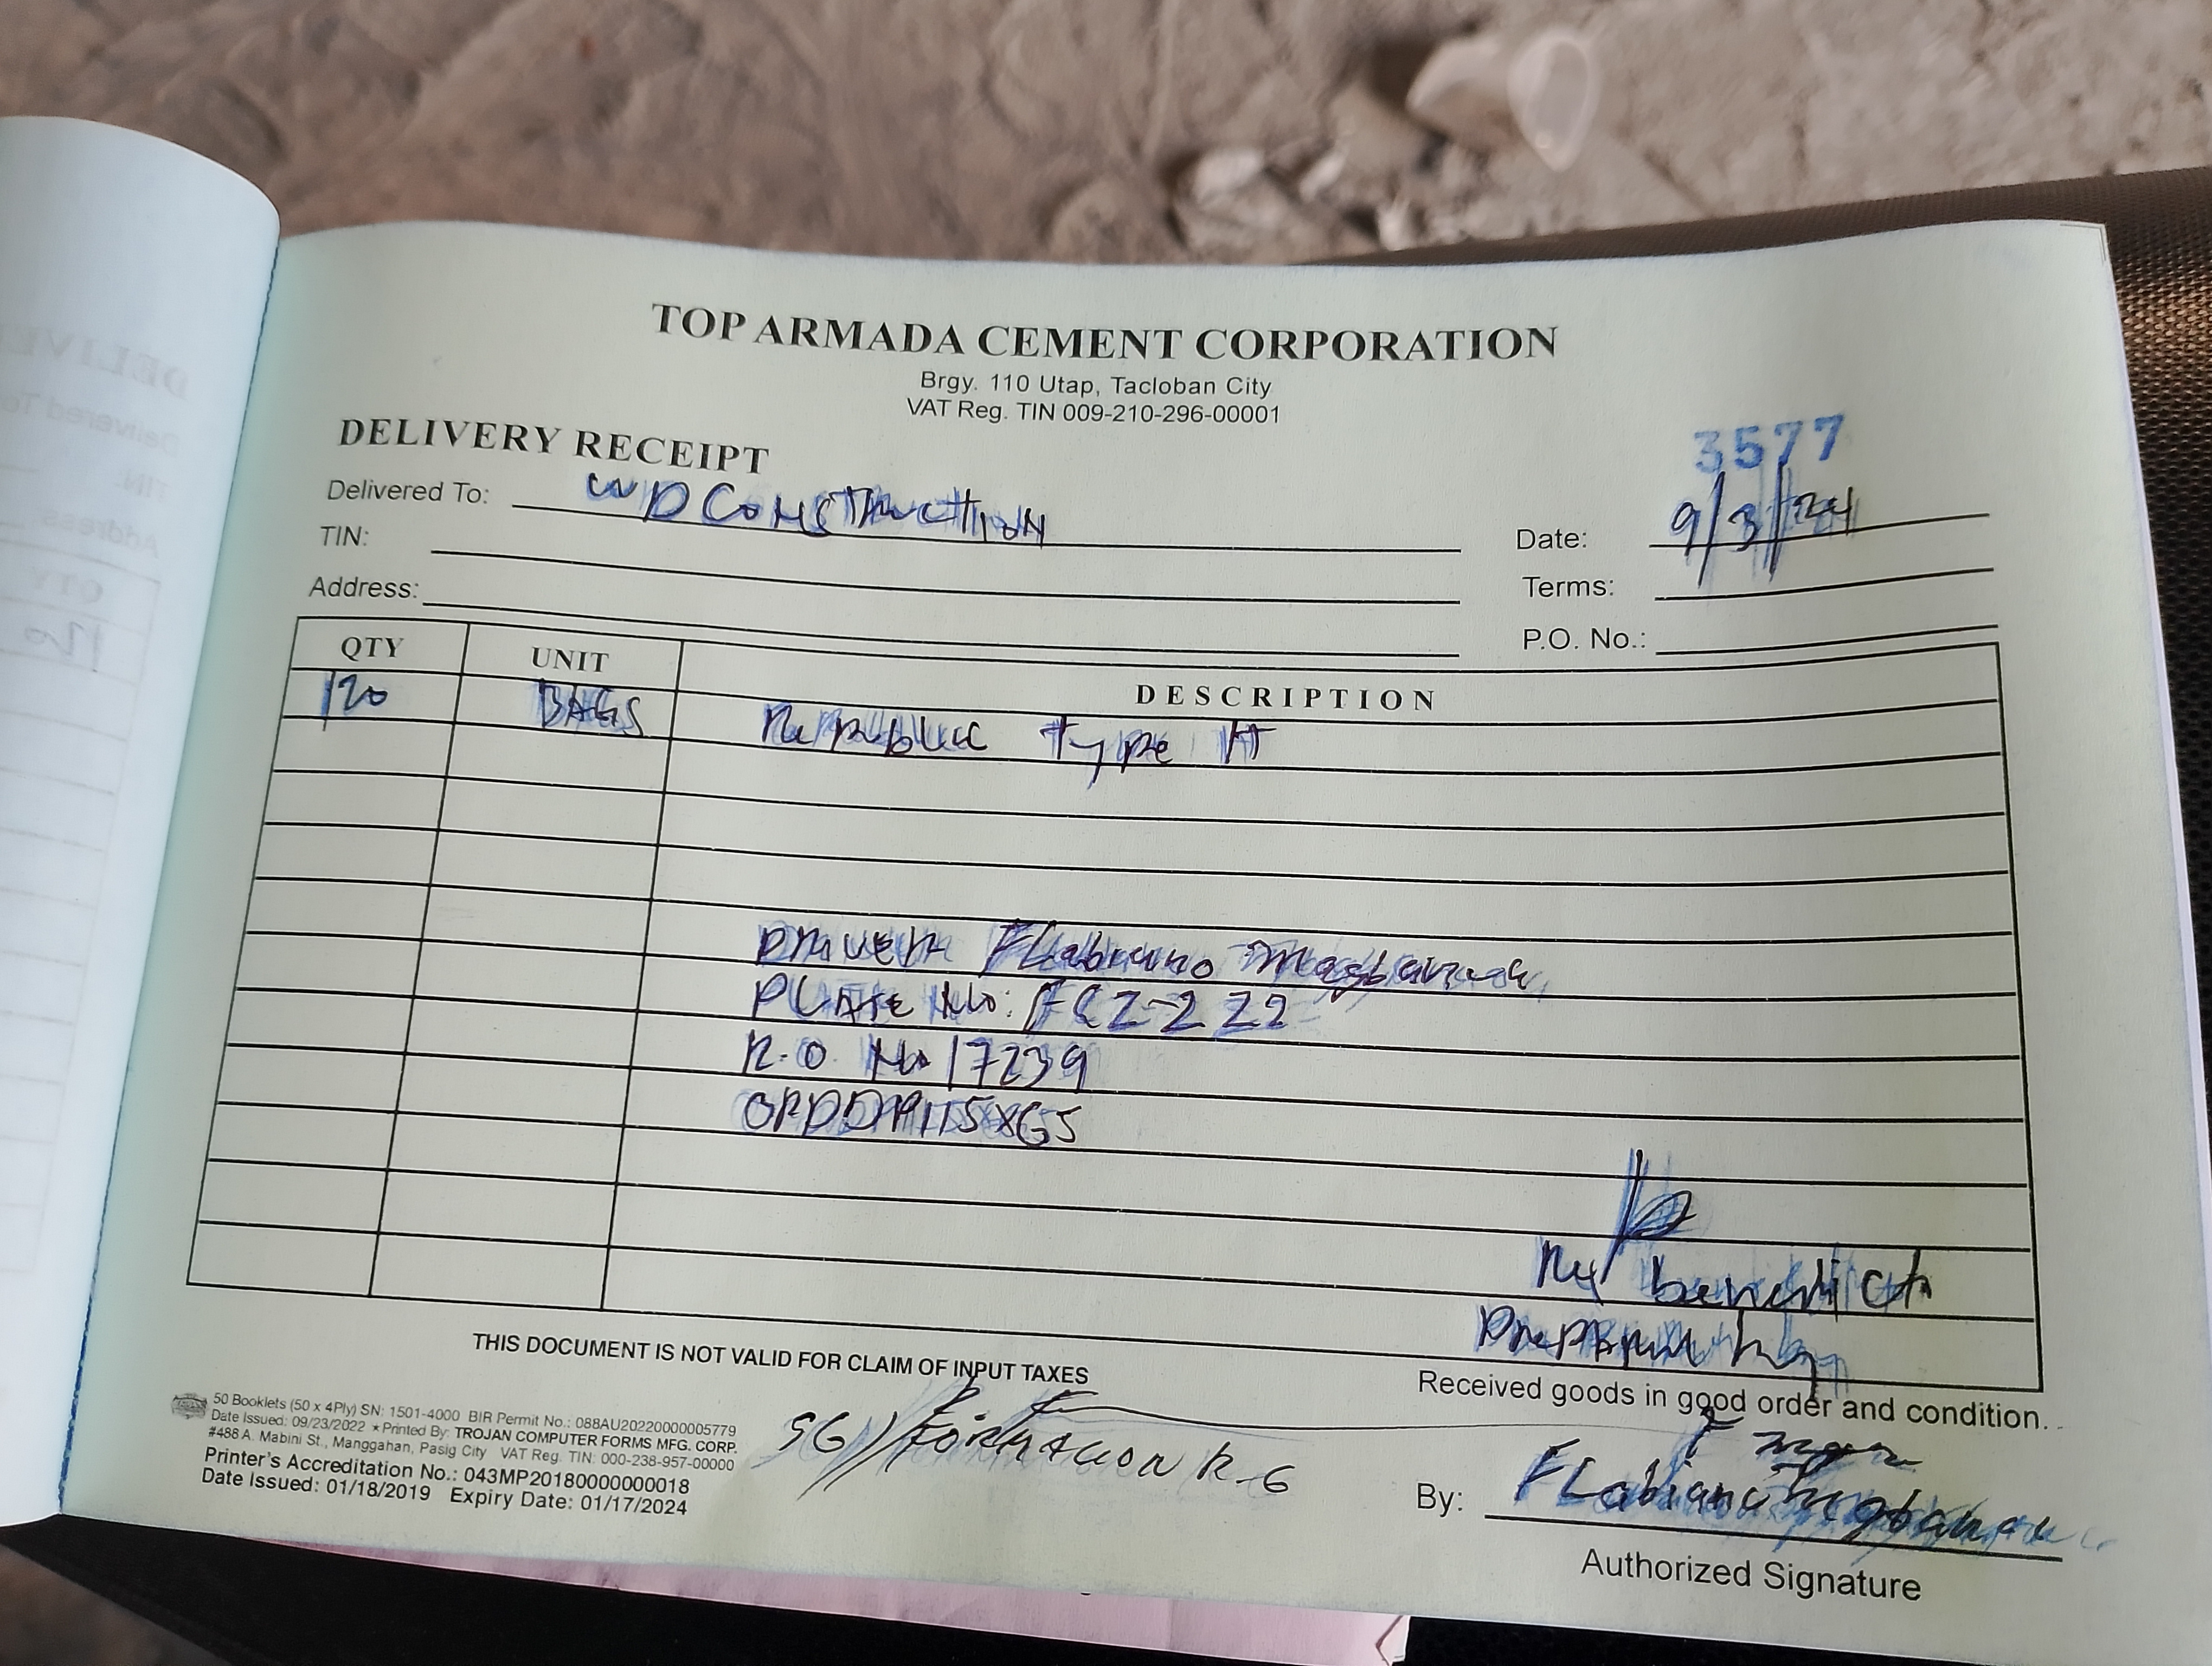 TOP ARMADA CEMENT CORPORATION
Brgy. 110 Utap, Tacloban City
VAT Reg. TIN 009-210-296-00001
3577
DELIVERY RECEIPT
Delivered To: WD CONSTRUCTION
Date: 9/3/24
TIN:
Terms:
Address:
P.O. No.:
QTY UNIT DESCRIPTION
120 BAGS Republic Type
DRIVER Flabiano Magbanua
PLATE No: FCZ-222
R.O. No 17239
Prepared by
THIS DOCUMENT IS NOT VALID FOR CLAIM OF INPUT TAXES
Received goods in good order and condition.
50 Booklets (50 x 4Ply) SN: 1501-4000 BIR Permit No.: 088AU20220000005779
Date Issued: 09/23/2022 ★ Printed By: TROJAN COMPUTER FORMS MFG. CORP.
#488 A. Mabini St., Manggahan, Pasig City VAT Reg. TIN: 000-238-957-00000
Printer's Accreditation No.: 043MP20180000000018
Date Issued: 01/18/2019 Expiry Date: 01/17/2024
SG/ R-G
By: Flabiano Magbanua
Authorized Signature
DELIVE
Delivered To
TIN:
Address
QTY
120